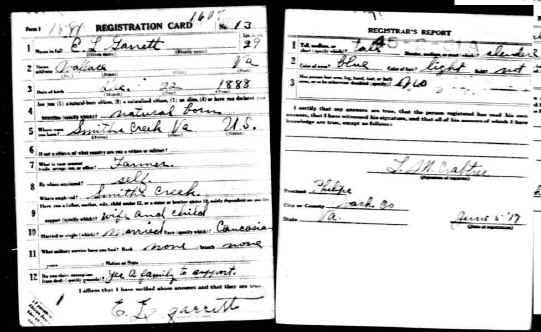 Form 1
REGISTRATION CARD
No. 13
1 Name in full E. L. Garrett 29
2 Home address Wallace Va
3 Date of birth Aug. 22 1888
4 Are you (1) a natural-born citizen, (2) a naturalized citizen, (3) an alien, (4) or have you declared your
intention (specify which)? natural born
5 Where were you born? Smiths Creek Va U.S.
6 If not a citizen, of what country are you a citizen or subject?
7 What is your present trade, occupation, or office? Farmer
8 By whom employed? self
Where employed? Smiths Creek.
9 Have you a father, mother, wife, child under 12, or a sister or brother under 12, solely dependent on you for
support (specify which)? wife and child
10 Married or single (which)? Married Race (specify which)? Caucasian
11 What military service have you had? Rank none branch none
years Nation or State
12 Do you claim exemption from draft (specify grounds)? yes A family to support.
I affirm that I have verified above answers and that they are true.
E. L. garrett
REGISTRAR'S REPORT
1 Tall, medium, or short (specify which)? tall slender
2 Color of eyes? blue Color of hair? light Bald? not
3 Has person lost arm, leg, hand, foot, or both eyes, or is he otherwise disabled (specify)? no
I certify that my answers are true, that the person registered has read his own
answers, that I have witnessed his signature, and that all of his answers of which I have
knowledge are true, except as follows:
(Signature of registrar)
Precinct Phelps
City or County Wash Co
State Va.
June 5 '17
(Date of registration)